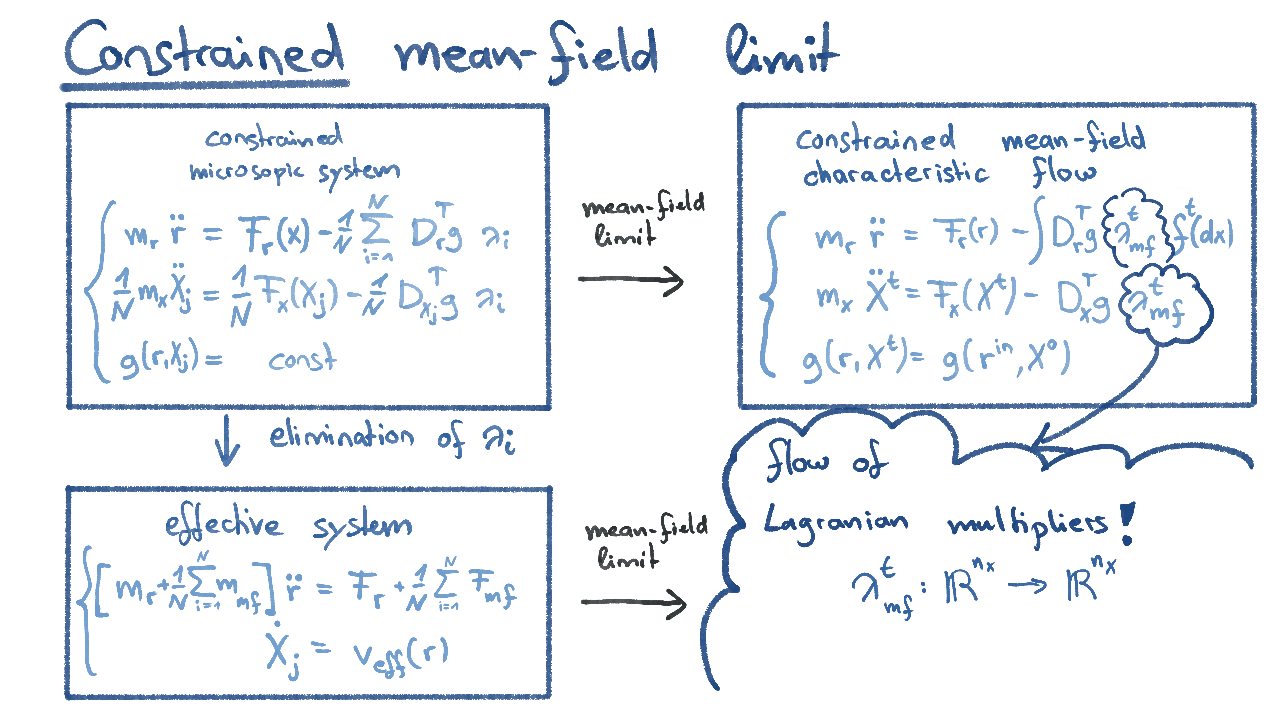 Constrained mean-field limit
constrained
microsopic system
m_r r̈ = F_r(x) - 1/N ∑_{i=1}^{N} D_r^T g λ_i
1/N m_x Ẍ_j = 1/N F_x(X_j) - 1/N D_{x_j}^T g λ_i
g(r, X_j) = const
mean-field
limit
constrained mean-field
characteristic flow
m_r r̈ = F_r(r) - ∫ D_r^T g λ_{mf}^t f^t(dx)
m_x Ẍ^t = F_x(X^t) - D_x^T g λ_{mf}^t
g(r, X^t) = g(r^{in}, X^0)
elimination of λ_i
effective system
[m_r + 1/N ∑_{i=1}^{N} m_{mf}] r̈ = F_r + 1/N ∑_{i=1}^{N} F_{mf}
Ẋ_j = v_{eff}(r)
mean-field
limit
flow of
Lagranian multipliers!
λ_{mf}^t : ℝ^{n_x} → ℝ^{n_x}